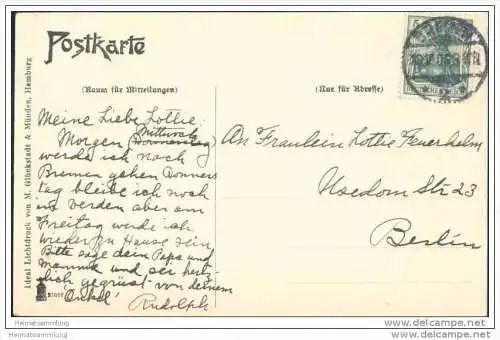 Postkarte
(Raum für Mitteilungen)
(Nur für Adresse)
Meine Liebe Lottie.
Mittwoch
Morgen (Donnerstag)
werde ich nach
Bremen gehen Donners
tag bleibe ich noch
in Verden aber am
Freitag werde ich
wieder zu Hause sein
Bitte sage dein Papa und
Mamma und sei herz-
lich gegrüst von deinem
Onkel
Rudolph
An Fraulein Lottie Feuerhelm
Usedom Str 23
Berlin
Ideal Lichtdruck von M. Glückstadt & Münden, Hamburg
DEUTSCHES REICH
Heimatsammlung
Heimatsammlung
www.delcampe.net